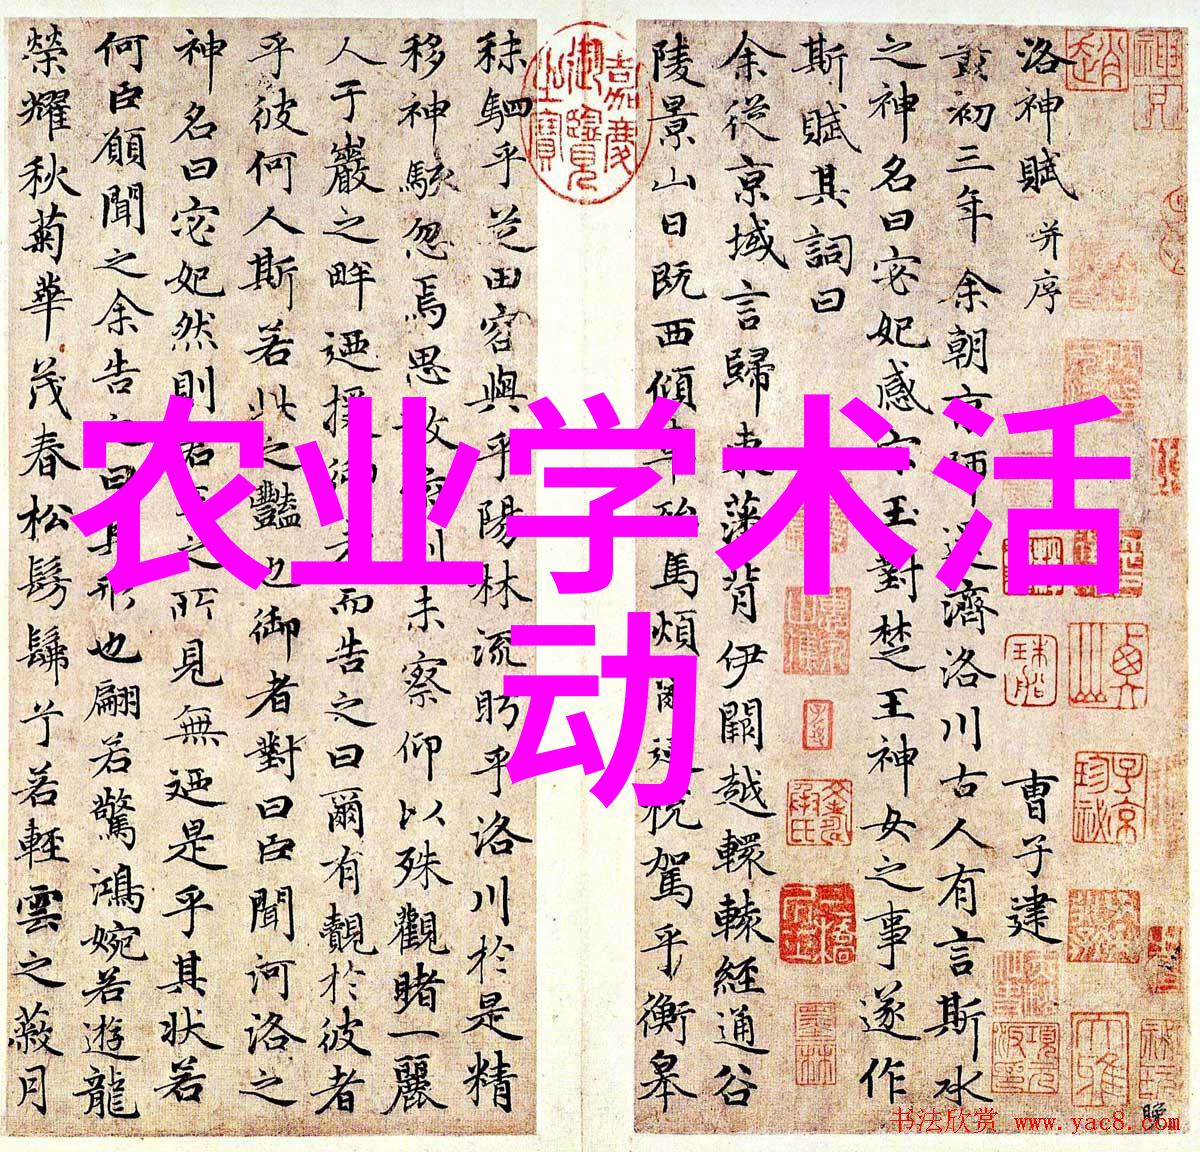 洛神賦 并序 曹子建
黃初三年余朝京師還濟洛川古人有言斯水
之神名曰宓妃感宋玉對楚王神女之事遂作
斯賦其詞曰
余從京域言歸東藩背伊闕越轘轅經通谷
陵景山日既西傾車殆馬煩爾迺稅駕乎衡皋
秣駟乎芝田容與乎陽林流眄乎洛川於是精
移神駭忽焉思散俯則未察仰以殊觀睹一麗
人于巖之畔迺援御者而告之曰爾有覿於彼者
乎彼何人斯若此之豔也御者對曰臣聞河洛之
神名曰宓妃然則君王之所見無迺是乎其狀若
何臣願聞之余告之曰其形也翩若驚鴻婉若遊龍
榮耀秋菊華茂春松髣髴兮若輕雲之蔽月
嘉慶御覽之寶
农业学术活
动
书法欣赏 www.yac8.com